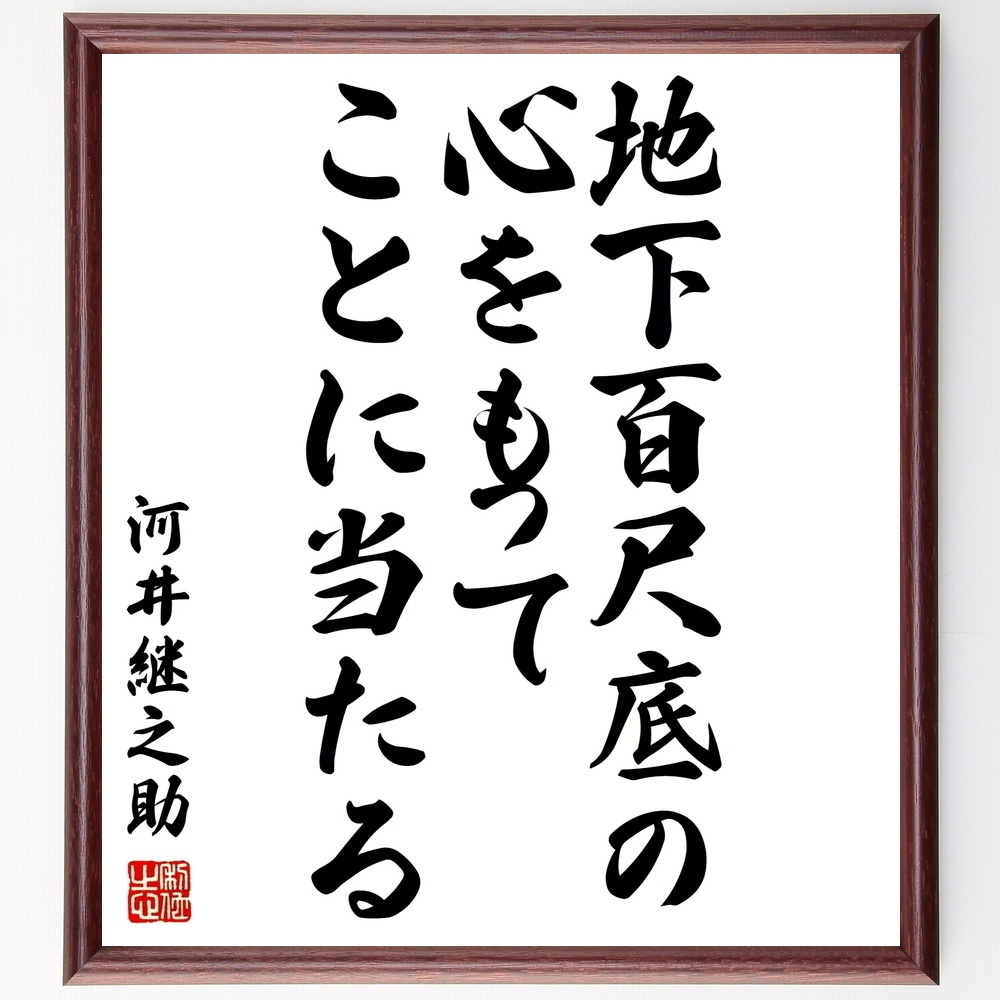 地下百尺底の
心をもって
ことに当たる
河井継之助